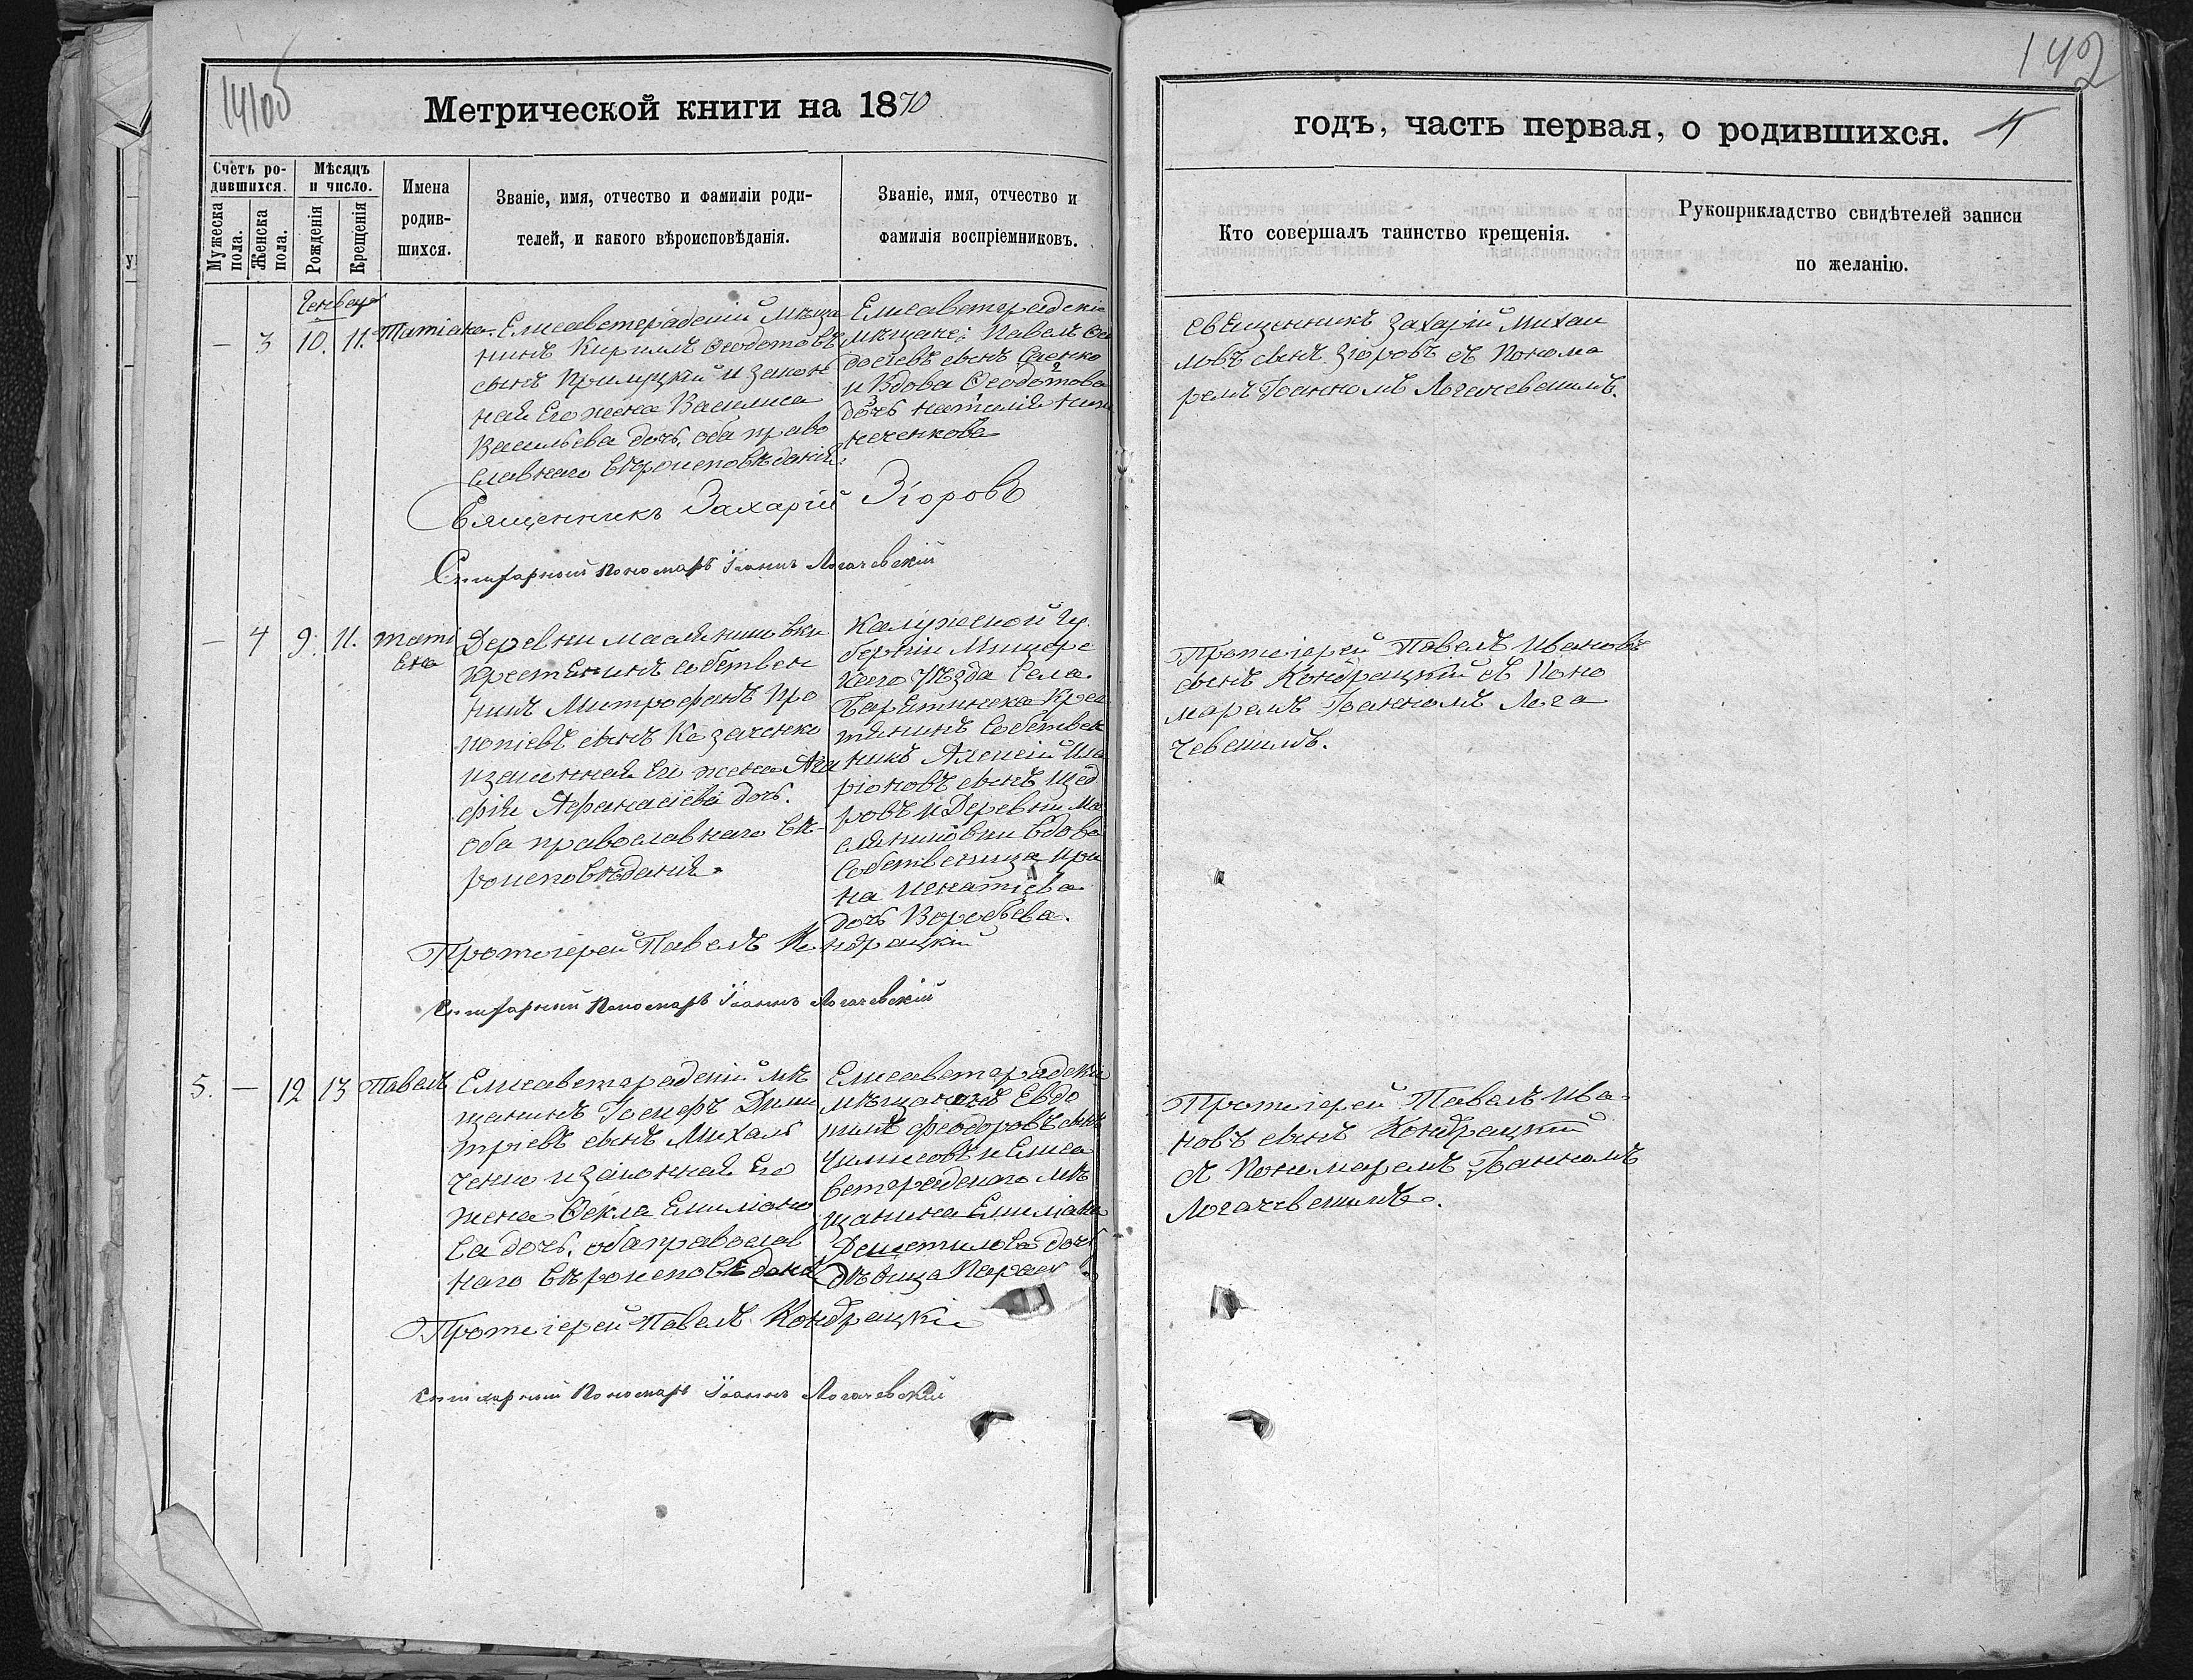 14105
142
Метрической книги на 1870
годъ, часть первая, о родившихся.
Счетъ ро-
дившихся.
Мужеска
пола.
Женска
пола.
Мѣсяцъ
и число.
Рожденія
Крещенія
Имена
родив-
шихся.
Званіе, имя, отчество и фамиліи роди-
телей, и какого вѣроисповѣданія.
Званіе, имя, отчество и
фамилія воспріемниковъ.
Кто совершалъ таинство крещенія.
Рукоприкладство свидѣтелей записи
по желанію.
Генваря
— 3 10. 11. Татіана.
Елисаветградскій мѣща
нинъ Кирилъ Ѳеодотовъ
сынъ Прилуцкій и закон
ная Его жена Василиса
Васильева дочь, оба право
славнаго вѣроисповѣданія.
Елисаветградскіе
мѣщане: Павелъ Ѳео
досіевъ сынъ
и Вдова Ѳеодотова
дочь Наталія
Священникъ Захарій Михаи
ловъ сынъ Зіоровъ съ Понома
ремъ Іоанномъ Логачевскимъ.
Священникъ Захарій Зіоровъ
Пономарь Іоаннъ Логачевскій
— 4 9. 11. Тати
ана
Деревни Масляниковки
крестьянинъ собствен
никъ Митрофанъ Про
копіевъ сынъ Казаченко
и законная Его жена Ага
фія Афанасіева дочь.
оба православнаго вѣ-
роисповѣданія.
Калужской Гу
берніи Мещовс
каго Уѣзда Села
Барятинска Крес
тянинъ Собствен
никъ Алексій Ила
ріоновъ сынъ Щед
ровъ и Деревни Ма
сляниковки Вдова
Собственица Ири
на Игнатіева
дочь Воробьева.
Протоіерей Павелъ Ивановъ
сынъ Кондрацкій съ Поно
маремъ Іоанномъ Лога
чевскимъ.
Протоіерей Павелъ Кондрацкій
Пономарь Іоаннъ Логачевскій
5. — 12 13 Павелъ
Елисаветградскій мѣ
щанинъ Іосифъ Дими
тріевъ сынъ Михаль
ченко и законная Его
жена Ѳекла Емиліано
ва дочь, оба православ
наго вѣроисповѣданія
Елисаветградскій
мѣщанинъ Евдо
кимъ Феодоровъ сынъ
и Елиса
ветградскаго мѣ
щанина Емиліана
дочь
дѣвица Параск
Протоіерей Павелъ Ива-
новъ сынъ Кондрацкій
съ Пономаремъ Іоанномъ
Логачевскимъ.
Протоіерей Павелъ Кондрацкій
Пономарь Іоаннъ Логачевскій